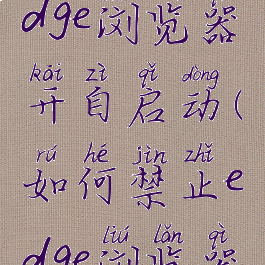 dge浏览器
kāi zì qǐ dòng
开自启动(
rú hé jìn zhǐ
如何禁止e
liú lǎn qì
dge浏览器